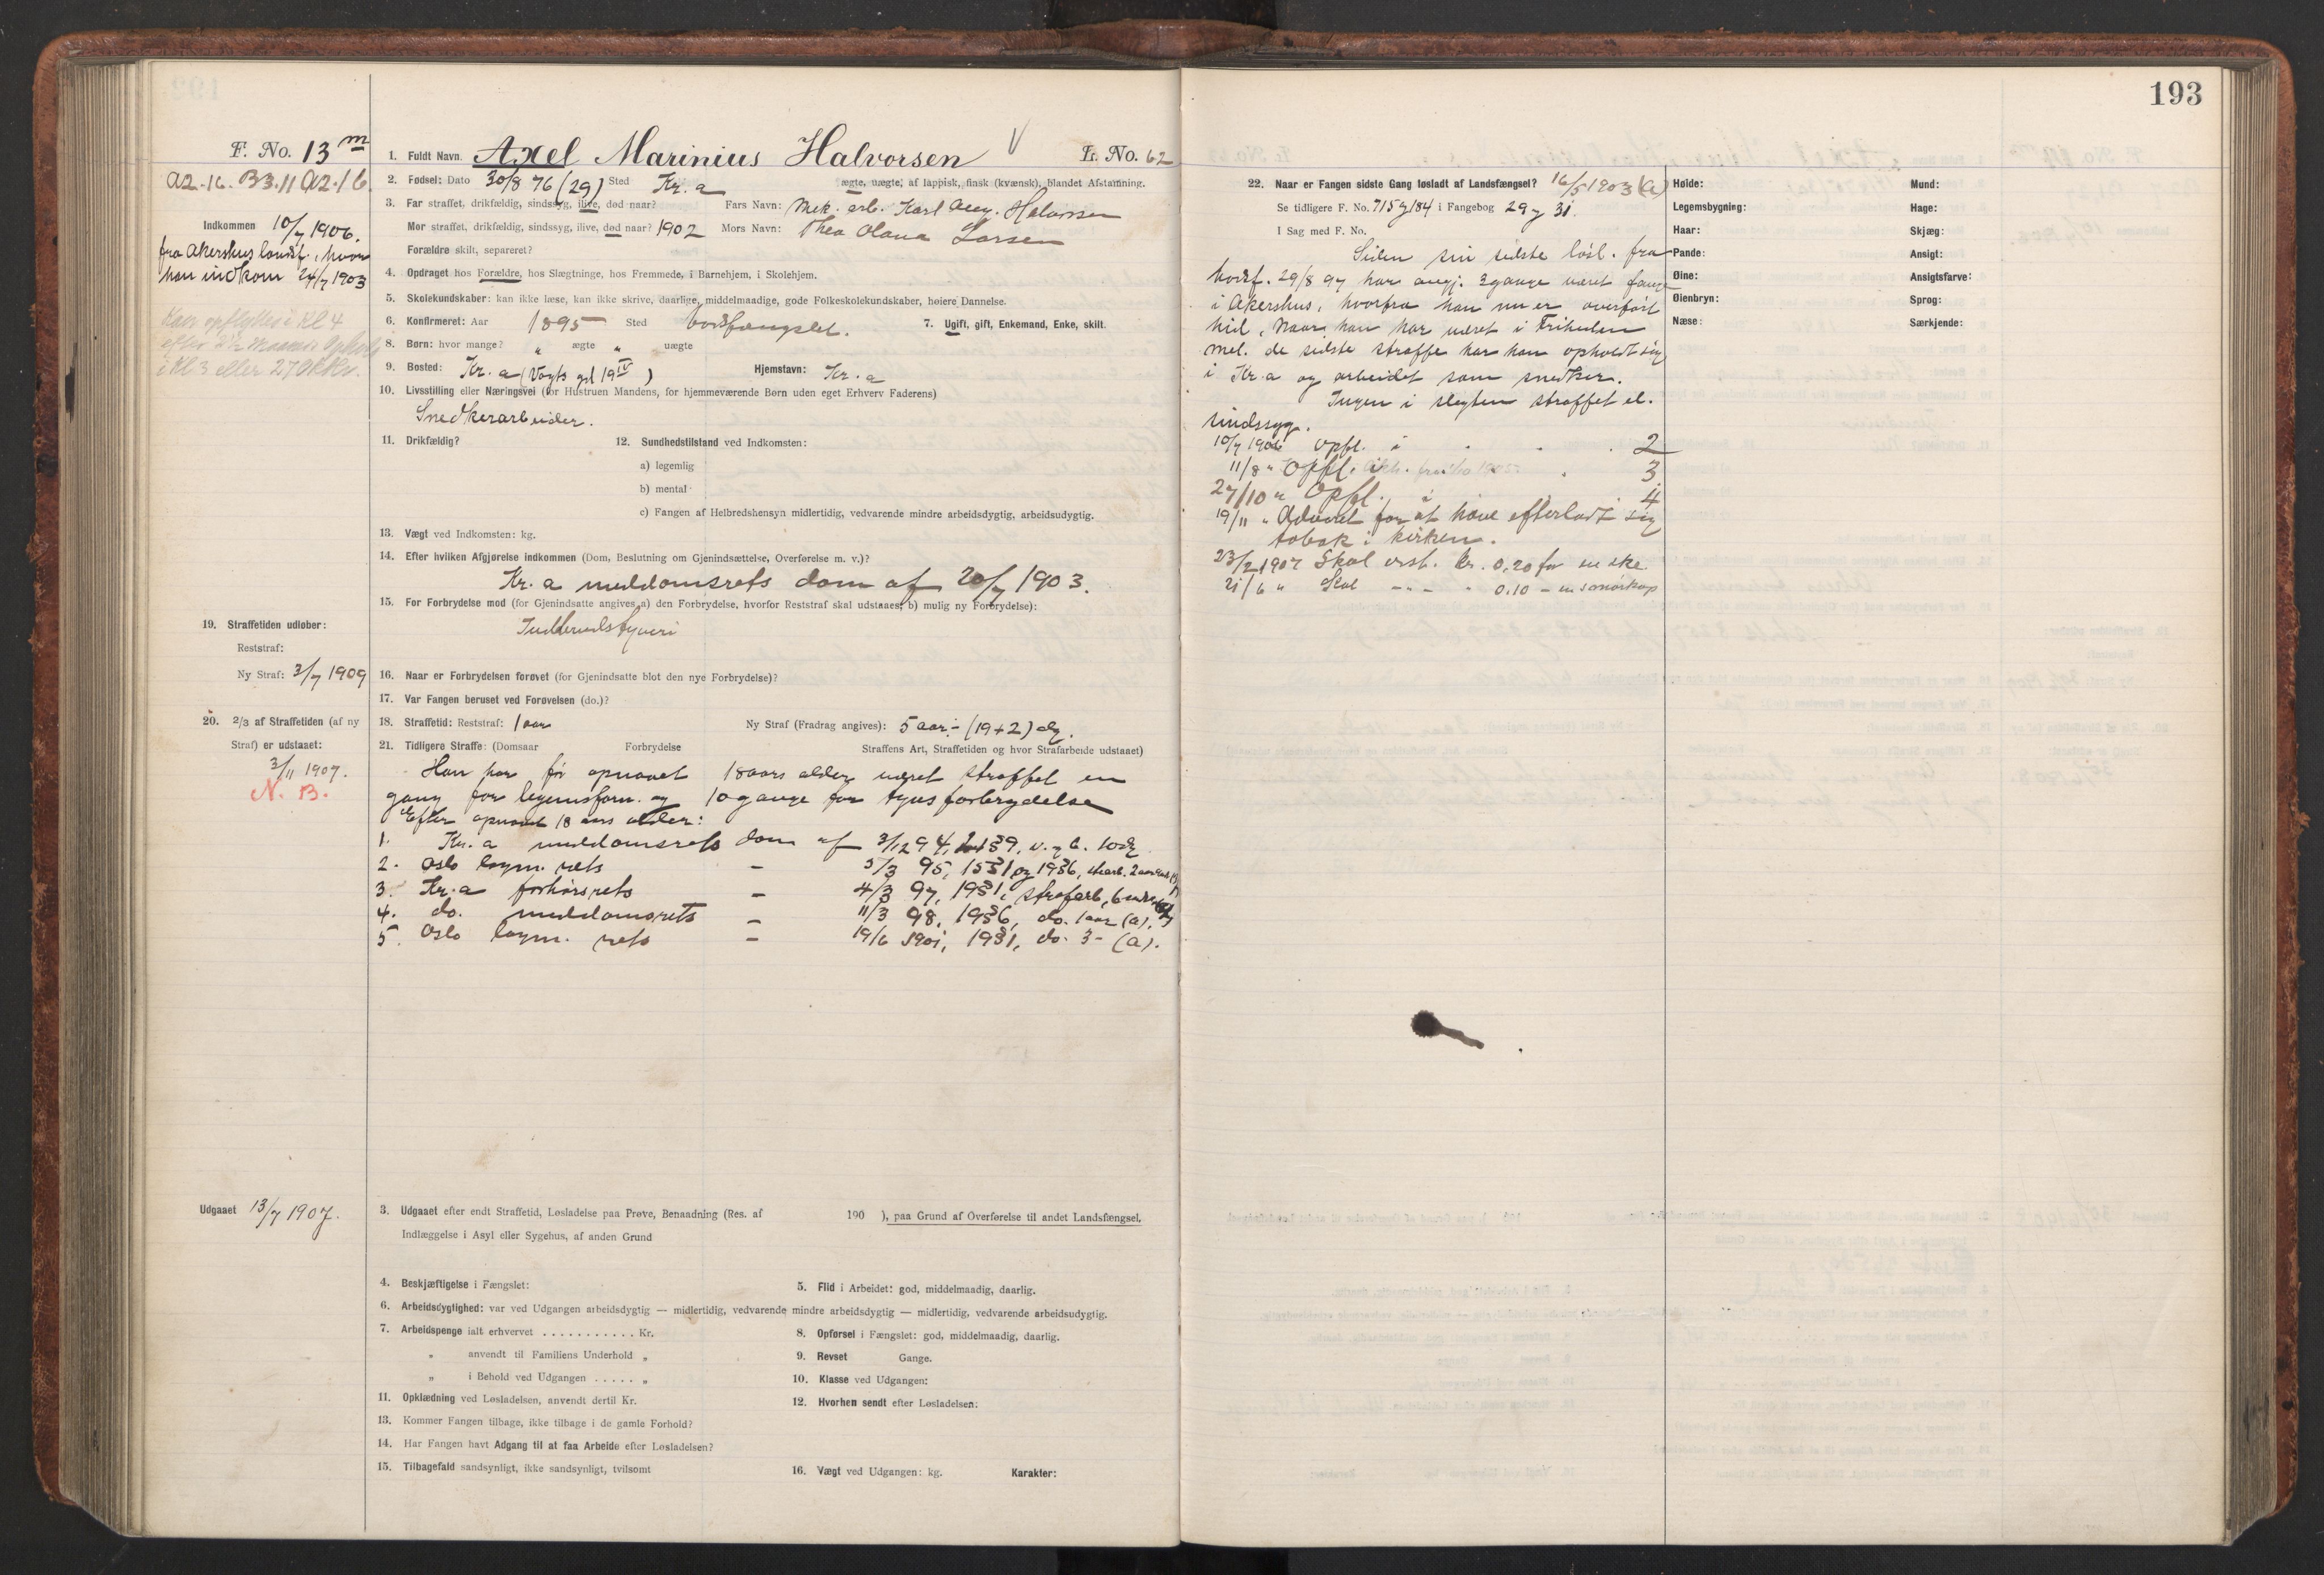 193
F. No. 13 m
1. Fuldt Navn. Axel Marinius Halvorsen V L. No. 62
A2.16. B3.11 A2.16.
2. Fødsel: Dato 30/8 76 (29) Sted Kr.a ægte, uægte, af lappisk, finsk (kvænsk), blandet Afstamning.
Indkommen 10/7 1906.
fra Akershus landsf., hvor
han indkom 24/7 1903
3. Far straffet, drikfældig, sindssyg, ilive, død naar? Fars Navn: Mek. arb. Karl Aug. Halvorsen
Mor straffet, drikfældig, sindssyg, ilive, død naar? 1902 Mors Navn: Thea Olava Larsen
Forældre skilt, separeret?
4. Opdraget hos Forældre, hos Slægtninge, hos Fremmede, i Barnehjem, i Skolehjem.
5. Skolekundskaber: kan ikke læse, kan ikke skrive, daarlige, middelmaadige, gode Folkeskolekundskaber, høiere Dannelse.
Kan opflyttes i Kl 4
efter 2½ Maaneds Ophold
i Kl 3 eller 27 Oktbr.
6. Konfirmeret: Aar 1895 Sted bodsfængslet. 7. Ugift, gift, Enkemand, Enke, skilt.
8. Børn: hvor mange? " ægte " uægte
9. Bosted: Kr.a (Vogts gd 19 IV) Hjemstavn: Kr.a
10. Livsstilling eller Næringsvei (for Hustruen Mandens, for hjemmeværende Børn uden eget Erhverv Faderens)
Snedkerarbeider.
11. Drikfældig? 12. Sundhedstilstand ved Indkomsten:
a) legemlig
b) mental
c) Fangen af Helbredshensyn midlertidig, vedvarende mindre arbeidsdygtig, arbeidsudygtig.
13. Vægt ved Indkomsten: kg.
14. Efter hvilken Afgjørelse indkommen (Dom, Beslutning om Gjenindsættelse, Overførelse m. v.)?
Kr.a meddomsrets dom af 20/7 1903.
15. For Forbrydelse mod (for Gjenindsatte angives a) den Forbrydelse, hvorfor Reststraf skal udstaaes; b) mulig ny Forbrydelse):
Indbrudstyveri
19. Straffetiden udløber:
Reststraf:
Ny Straf: 3/7 1909
16. Naar er Forbrydelsen forøvet (for Gjenindsatte blot den nye Forbrydelse)?
17. Var Fangen beruset ved Forøvelsen (do.)?
20. 2/3 af Straffetiden (af ny
Straf) er udstaaet:
3/11 1907.
N. B.
18. Straffetid: Reststraf: 1 aar Ny Straf (Fradrag angives): 5 aar ÷ (19+2) dg.
21. Tidligere Straffe: (Domsaar Forbrydelse Straffens Art, Straffetiden og hvor Strafarbeide udstaaet)
Han har før opnaaet 18 aars alder været straffet en
gang for legemsforn. og 10 gange for tyvsforbrydelse
Efter opnaaet 18 aars alder:
1. Kr.a meddomsrets dom af 3/12 94, v. og b. 10 dg.
2. Oslo lagm. rets — 5/3 95,
3. Kr.a forhørsrets — 4/3 97, strafarb,
4. do. meddomsrets — 11/3 98, do. 1 aar (a),
5. Oslo lagm. rets — 19/6 1901, do. 3 - (a).
Udgaaet 13/7 1907.
3. Udgaaet efter endt Straffetid, Løsladelse paa Prøve, Benaadning (Res. af 190 ), paa Grund af Overførelse til andet Landsfængsel,
Indlæggelse i Asyl eller Sygehus, af anden Grund
4. Beskjæftigelse i Fængslet: 5. Flid i Arbeidet: god, middelmaadig, daarlig.
6. Arbeidsdygtighed: var ved Udgangen arbeidsdygtig — midlertidig, vedvarende mindre arbeidsdygtig — midlertidig, vedvarende arbeidsudygtig.
7. Arbeidspenge ialt erhvervet . . . . . . . . . . . Kr. 8. Opførsel i Fængslet: god, middelmaadig, daarlig.
" anvendt til Familiens Underhold " 9. Revset Gange.
" i Behold ved Udgangen . . . . . " 10. Klasse ved Udgangen:
11. Opklædning ved Løsladelsen, anvendt dertil Kr. 12. Hvorhen sendt efter Løsladelsen:
13. Kommer Fangen tilbage, ikke tilbage i de gamle Forhold?
14. Har Fangen havt Adgang til at faa Arbeide efter Løsladelsen?
15. Tilbagefald sandsynligt, ikke sandsynligt, tvilsomt 16. Vægt ved Udgangen: kg. Karakter:
22. Naar er Fangen sidste Gang løsladt af Landsfængsel? 16/5 1903 (a)
Se tidligere F. No. 715 og 184 i Fangebog 29 og 31.
I Sag med F. No.
Siden sin sidste løsl. fra
bodsf. 29/8 97 har angj. 3 gange været fange
i Akershus, hvorfra han nu er overført
hid. Naar han har været i Friheden
mel. de sidste straffe har han opholdt sig
i Kr.a og arbeidet som snedker.
Ingen i slegten straffet el.
sindssyg.
10/7 1906 Opfl. i . . . 2
11/8 " Opfl. i . 3
27/10 " Opfl. i 4
19/11 " Advaret for at have efterladt sig
tobak i kirken.
23/2 1907 Skal erst. kr. 0,20 for en ske
21/6 " Skal - " - " 0.10 - en smørkop
Høide: Mund:
Legemsbygning: Hage:
Haar: Skjæg:
Pande: Ansigt:
Øine: Ansigtsfarve:
Øienbryn: Sprog:
Næse: Særkjende: